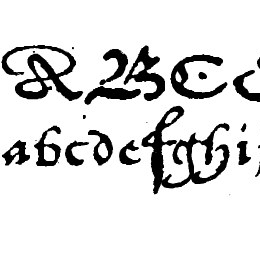 A B C
a b c d e f g h i